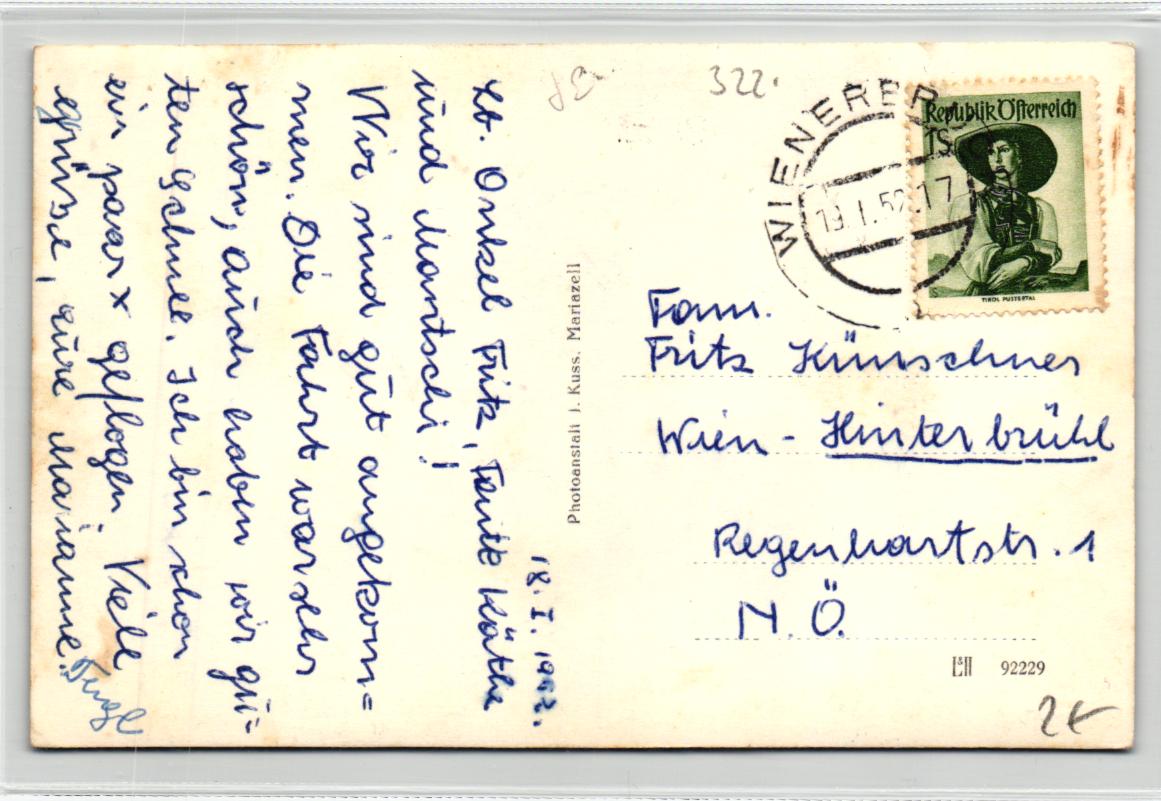 18. I. 1952.
Lb. Onkel Fritz, Tante Käthe
und Mantschi!
Wir sind gut angekom=
men. Die Fahrt war sehr
schön, auch haben wir gu-
ten Schnee. Ich bin schon
ein paar x geflogen. Viele
Grüsse, eure Marianne.
Photoanstalt J. Kuss. Mariazell
322.
WIENERBR
19. I. 52. 17
Republik Österreich
1S
TIROL PUSTERTAL
Fam.
Fritz Künschner
Wien - Hinterbrühl
Regenhartstr. 1
N. Ö.
92229
2€